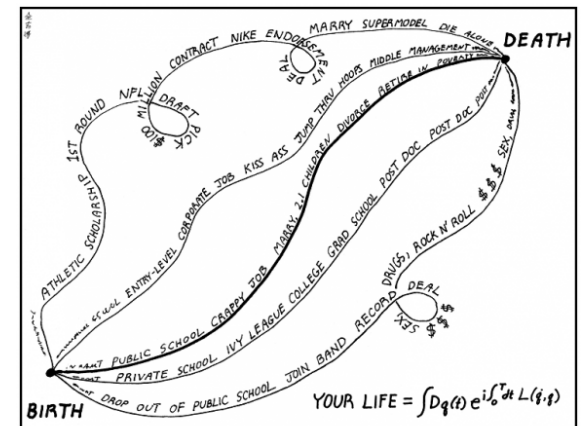 MARRY SUPERMODEL DIE ALONE
DEATH
ATHLETIC SCHOLARSHIP 1ST ROUND NFL DRAFT PICK $100 MILLION CONTRACT NIKE ENDORSEMENT DEAL
ENTRY-LEVEL CORPORATE JOB KISS ASS JUMP THRU HOOPS MIDDLE MANAGEMENT
INFANT PUBLIC SCHOOL CRAPPY JOB MARRY, 2.1 CHILDREN DIVORCE RETIRE IN POVERTY
INFANT PRIVATE SCHOOL IVY LEAGUE COLLEGE GRAD SCHOOL POST DOC POST DOC POST
DROP OUT OF PUBLIC SCHOOL JOIN BAND RECORD DEAL $$$ SEX, DRUGS, ROCK N' ROLL $$$ SEX, DRUGS
BIRTH
YOUR LIFE = ∫Dq(t) e^{i∫₀ᵀdt L(q̇,q)}